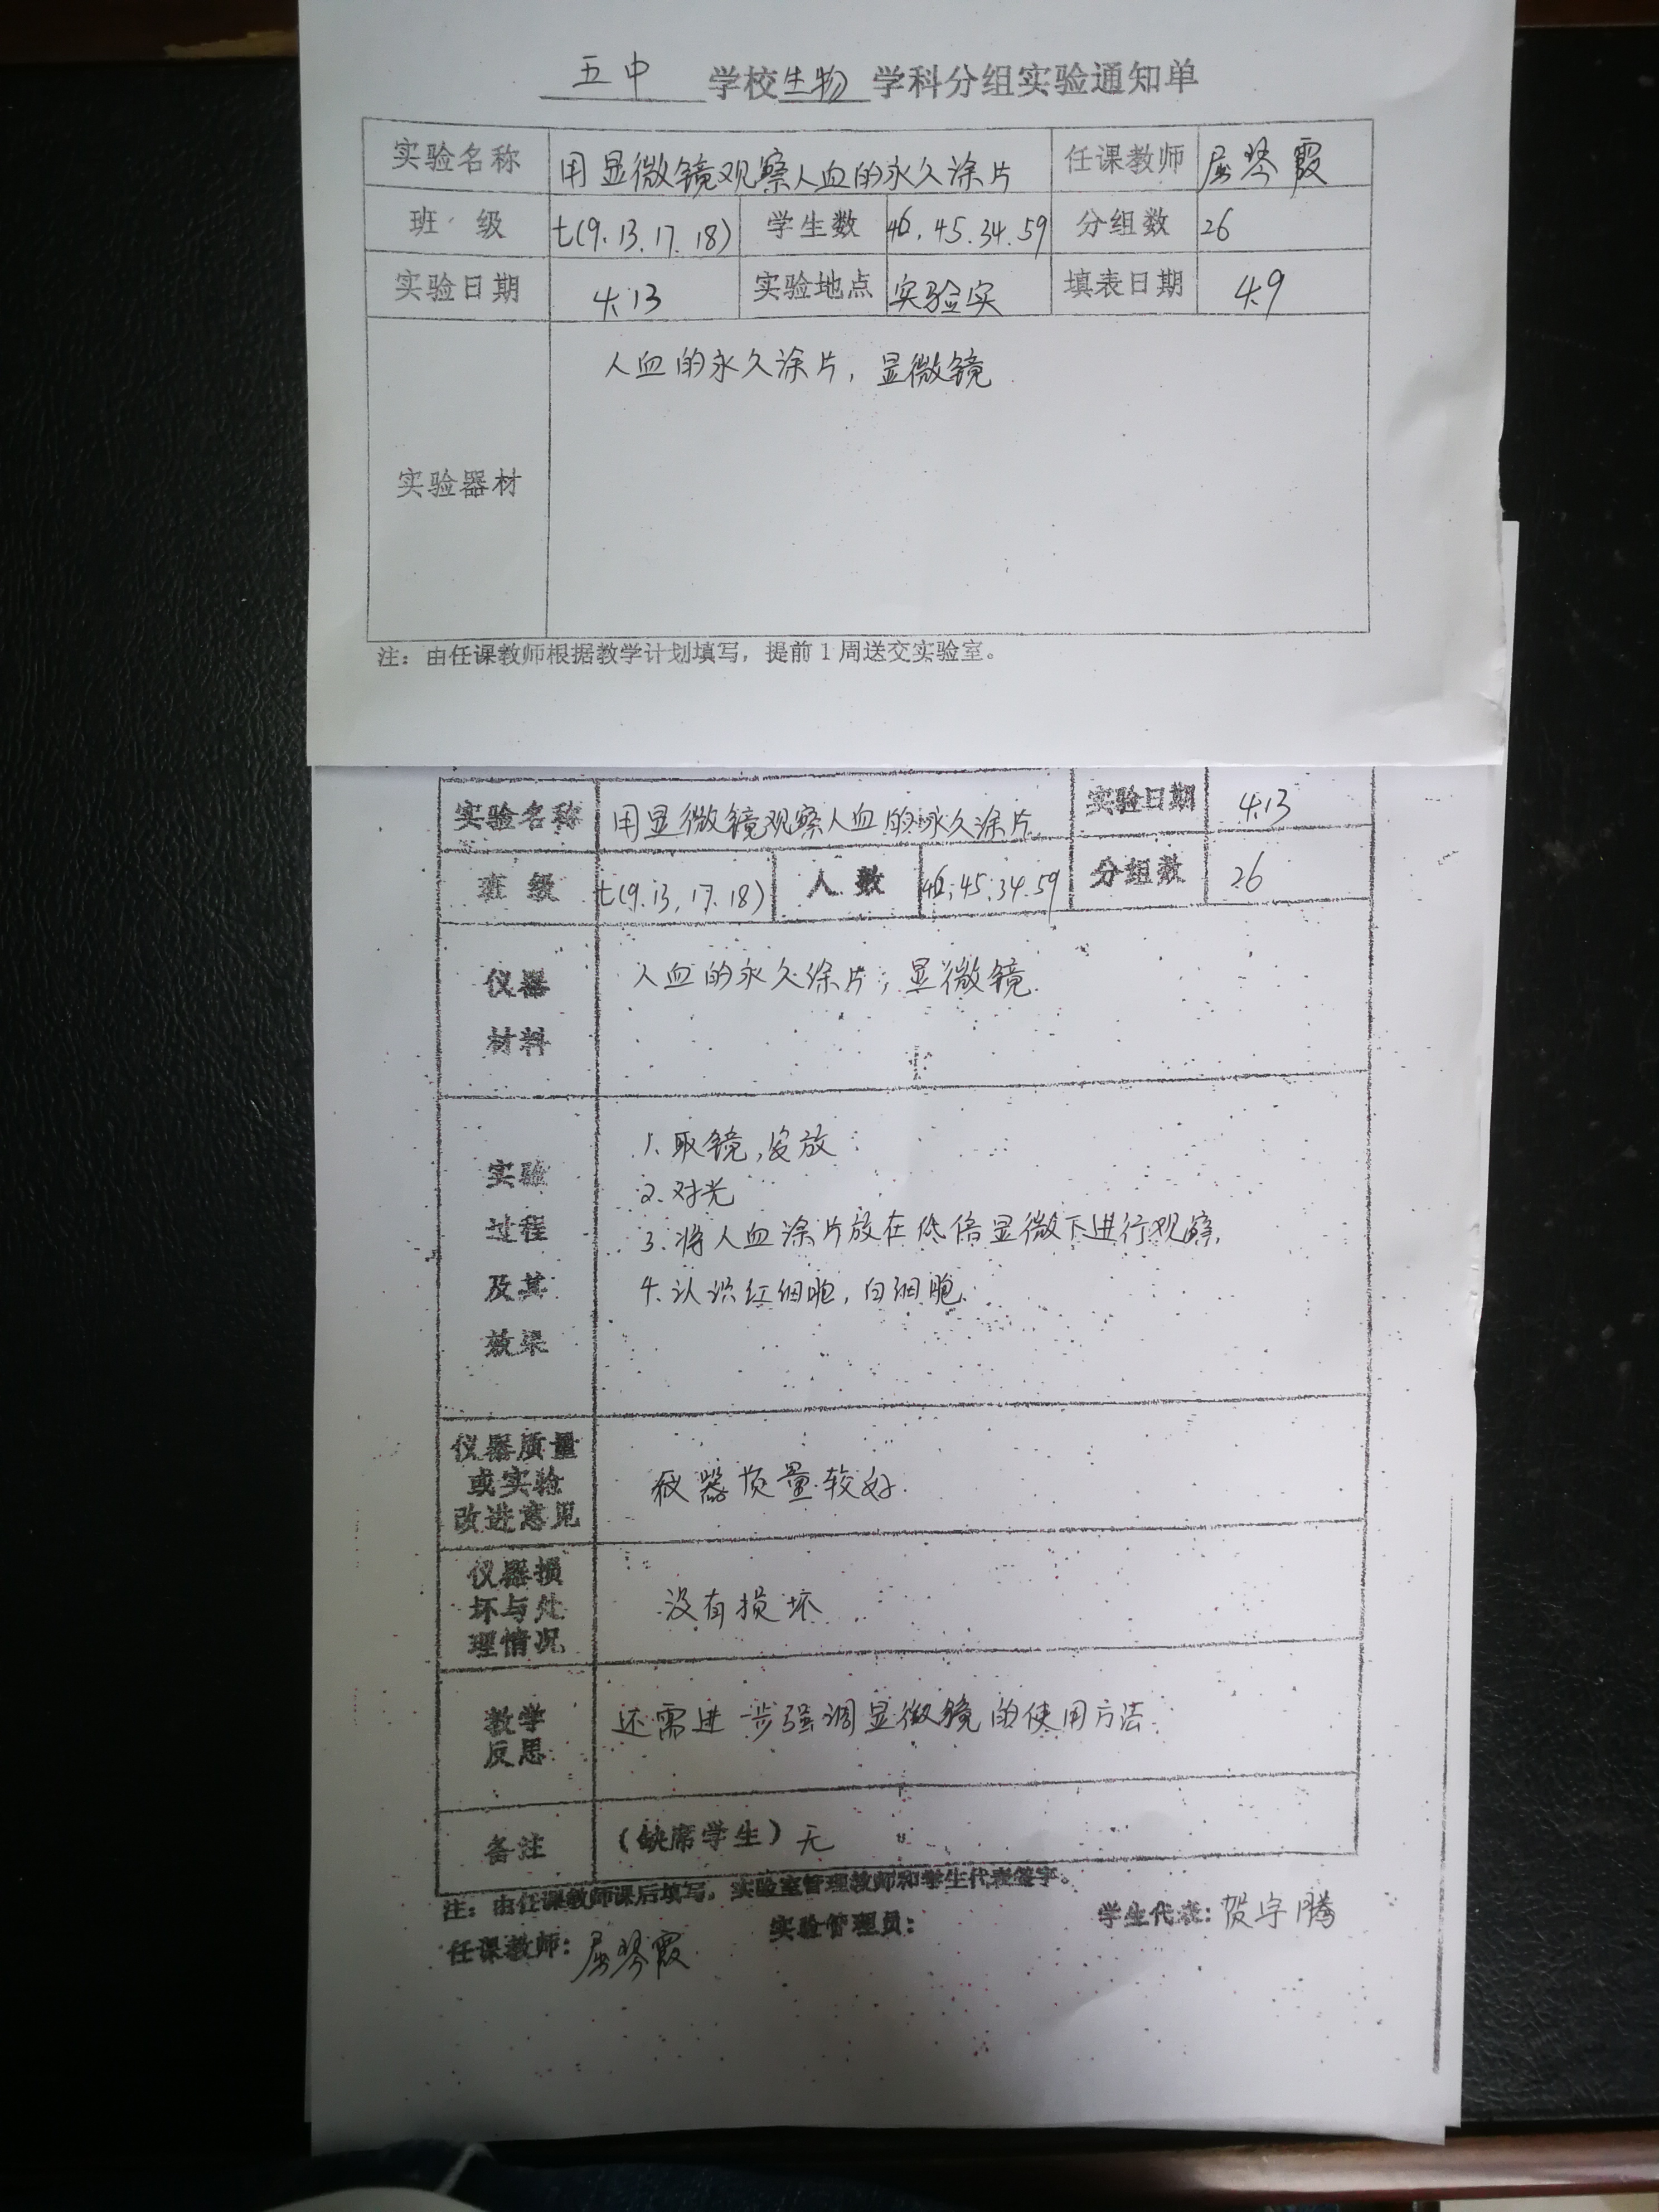 五中 学校 生物 学科分组实验通知单
实验名称 用显微镜观察人血的永久涂片 任课教师 屈琴霞
班 级 七(9.13.17.18) 学生数 46.45.34.59 分组数 26
实验日期 4.13 实验地点 实验实 填表日期 4.9
实验器材 人血的永久涂片，显微镜
注：由任课教师根据教学计划填写，提前1周送交实验室。
实验名称 用显微镜观察人血的永久涂片 实验日期 4.13
班 级 七(9.13.17.18) 人 数 46.45.34.59 分组数 26
仪器
材料
人血的永久涂片；显微镜.
实验
过程
及其
效果
1.取镜，安放
2.对光
3.将人血涂片放在低倍显微下进行观察.
4.认识红细胞，白细胞.
仪器质量
或实验
改进意见
仪器质量较好.
仪器损
坏与处
理情况
没有损坏
教学
反思
还需进一步强调显微镜的使用方法.
备注 （缺席学生）无
注：由任课教师课后填写，实验室管理教师和学生代表签字。
任课教师：屈琴霞 实验管理员： 学生代表：贺宇腾